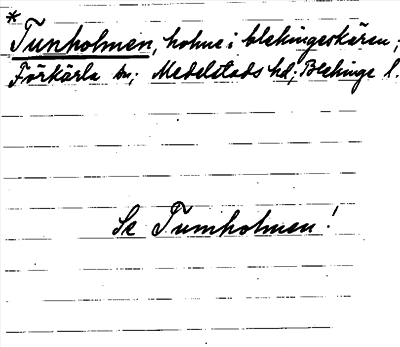 *
Tunholmen, holme i blekingeskären;
Förkärla sn; Medelstads hd; Blekinge l.
Se Tumholmen!